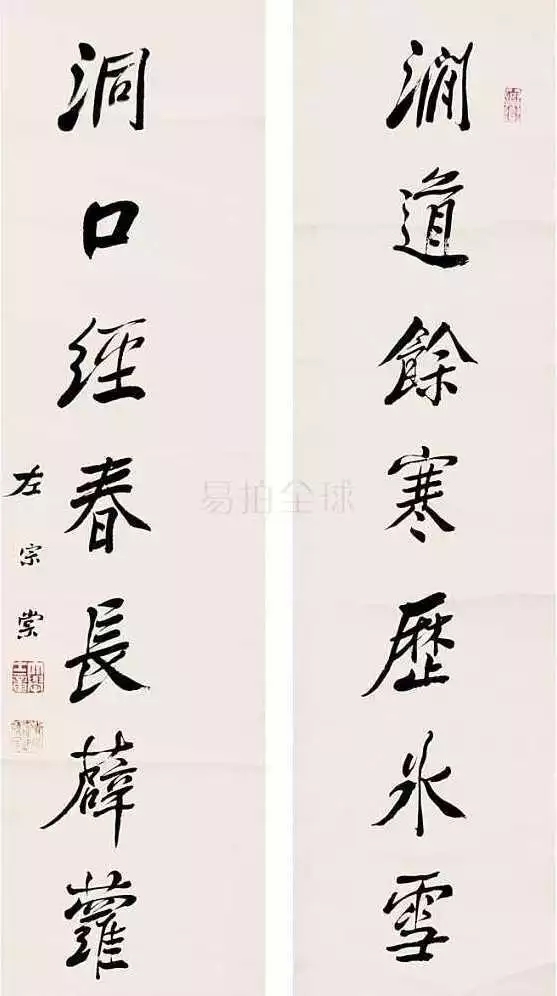 澗道餘寒歷氷雪
洞口經春長薜蘿
左宗棠
易拍全球